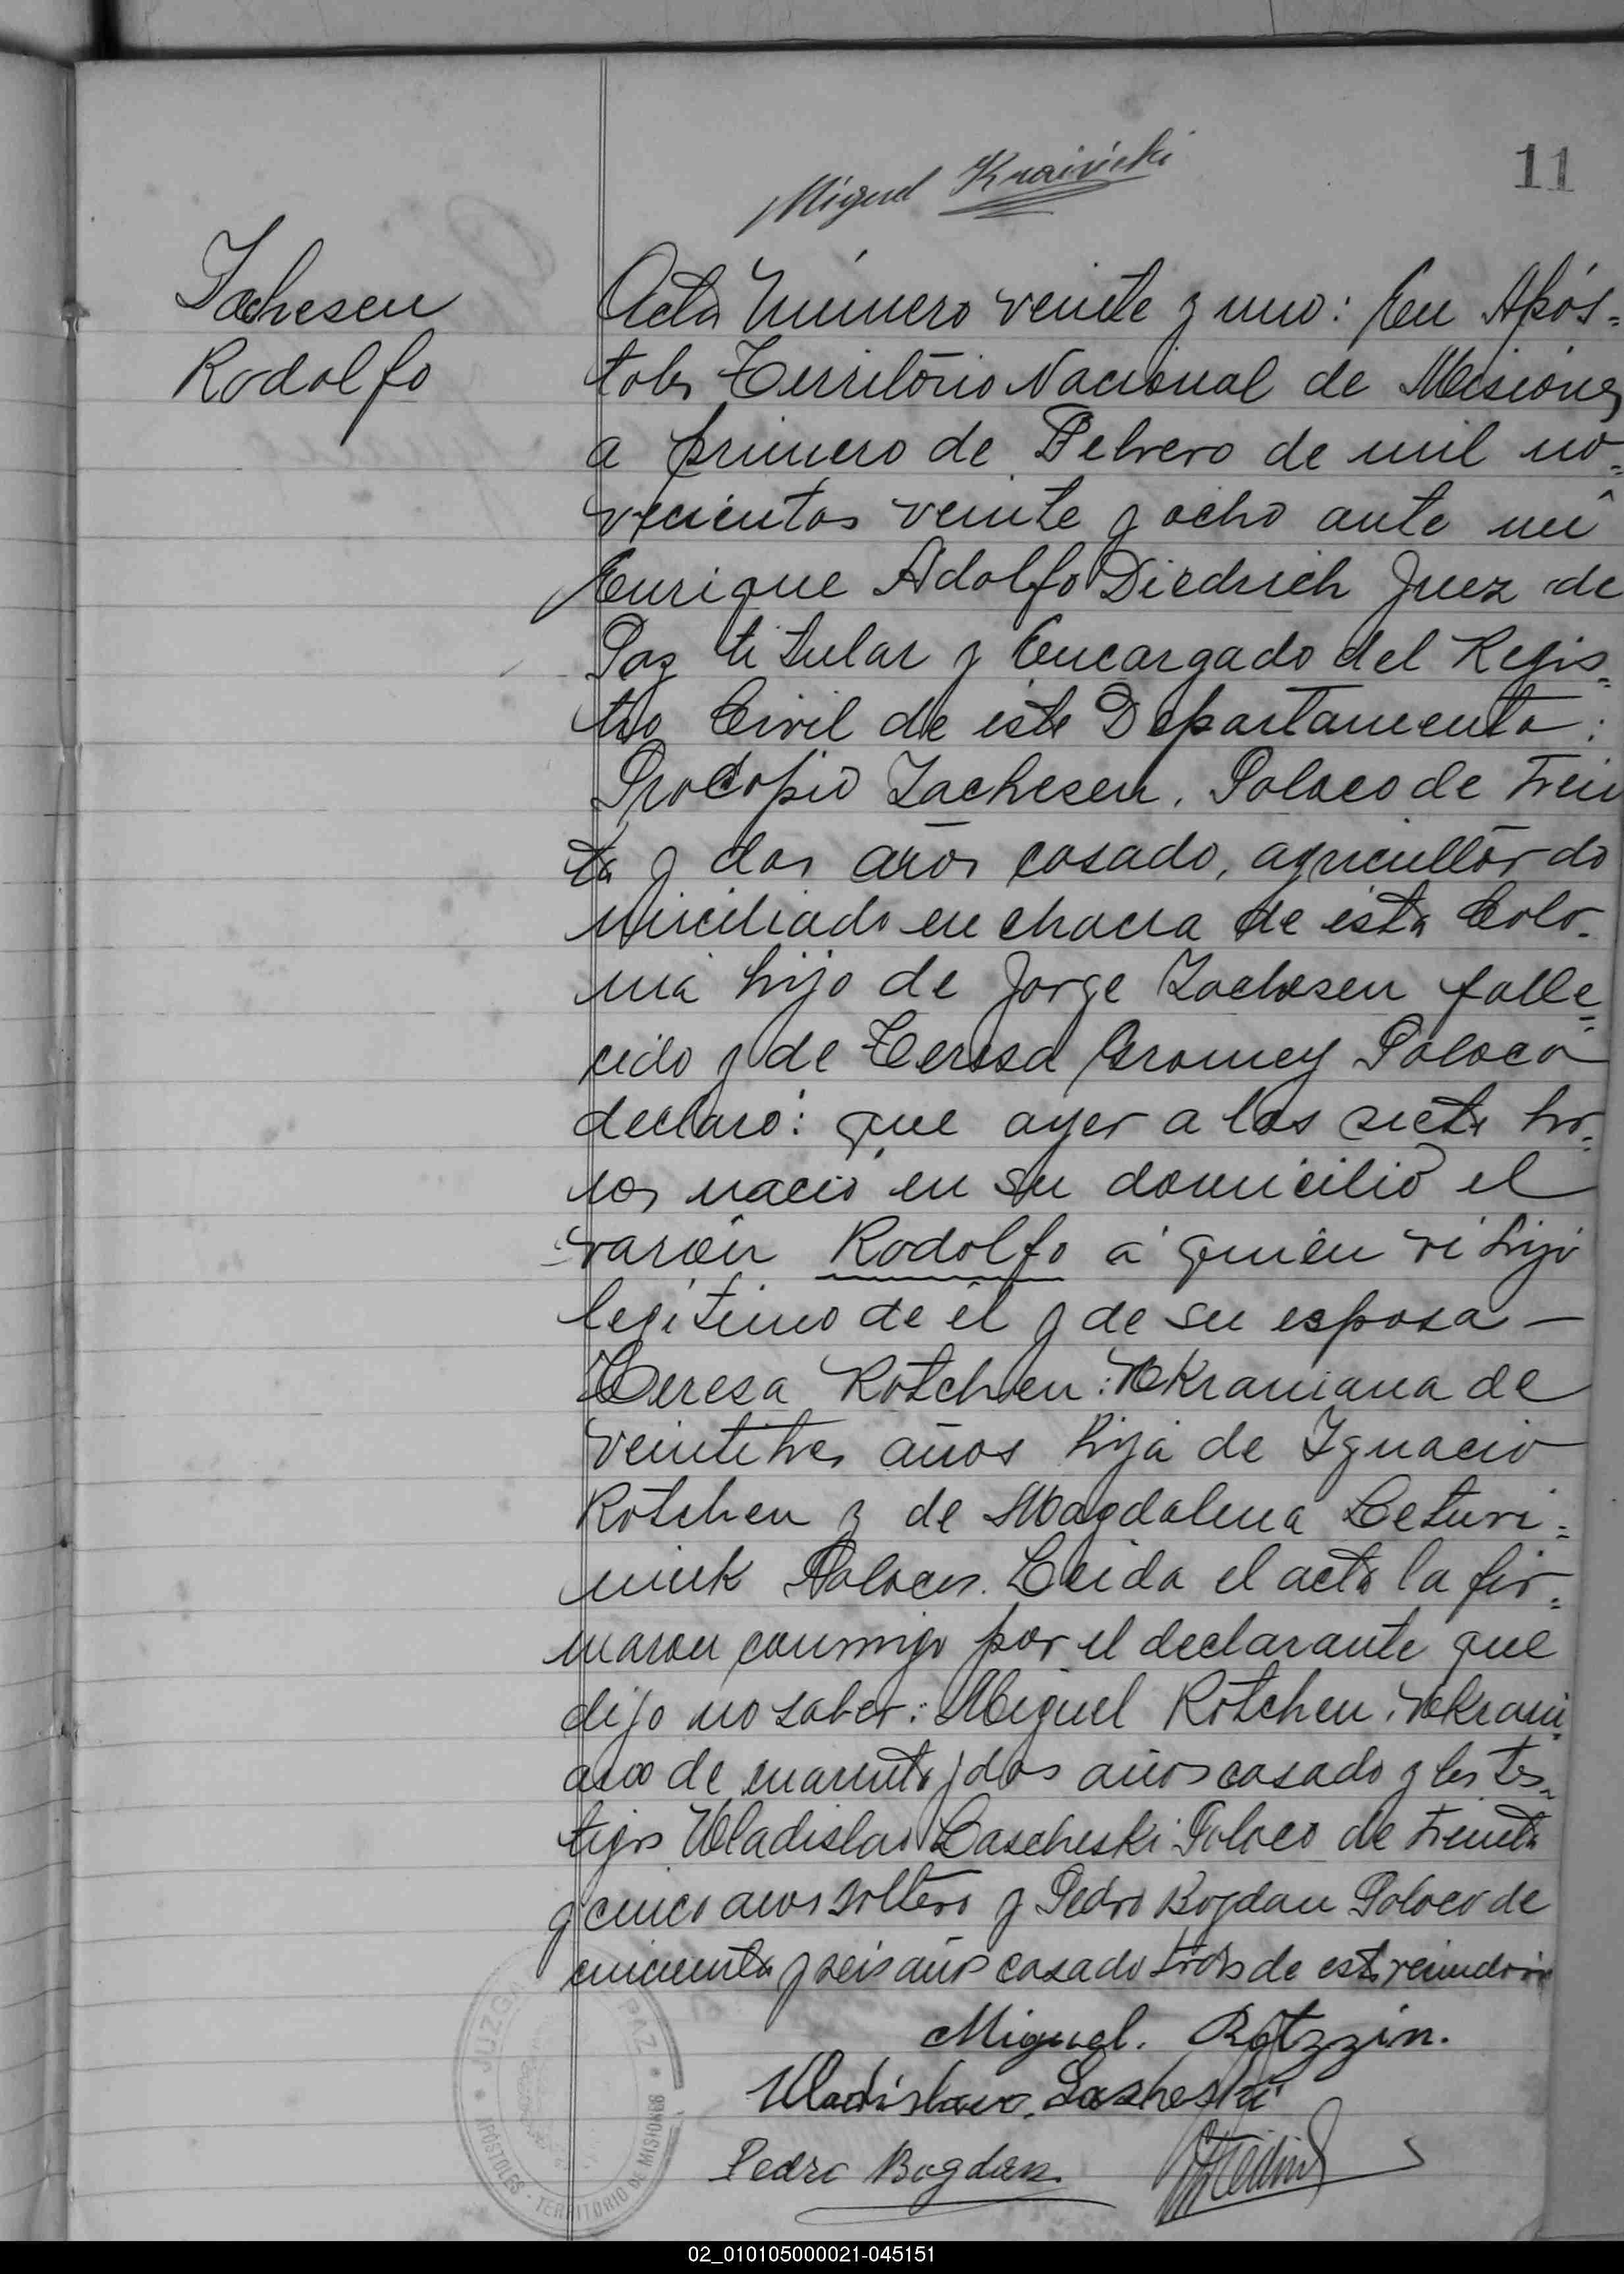 Miguel Kraiviski
11
Zachesen
Rodolfo
Acta Número veinte y uno: En Após=
toles Territorio Nacional de Misiones
a primero de Febrero de mil no=
vecientos veinte y ocho ante mi
Enrique Adolfo Diedrich Juez de
Paz titular y Encargado del Regis=
tro Civil de este Departamento:
Procopio Zachesen, Polaco de trein
ta y dos años casado, agricultor do
miciliado en chacra de esta Colo-
nia hijo de Jorge Zachesen falle=
cido y de Teresa Gromey Polaca
declaró: que ayer a las siete ho=
ras nació en su domicilio el
varón Rodolfo á quién vi hijo
legítimo de él y de su esposa —
Teresa Rotchen: Ukraniana de
veintitres años hija de Ignacio
Rotchen y de Magdalena Leturi=
niuk Polacos. Leida el acta la fir=
maron conmigo por el declarante que
dijo no saber: Miguel Rotchen, Ukrani
ano de cuarenta y dos años casado y los tes-
tigos Uladislao Lascheski Polaco de treinta
y cinco años soltero y Pedro Bogdan Polaco de
cincuenta y seis años casado todos de esta vecindad
Miguel. Rotzzin.
Uladislavo. Lasheski
Pedro Bogdan
JUZGADO DE PAZ
APÓSTOLES - TERRITORIO DE MISIONES
02_010105000021-045151